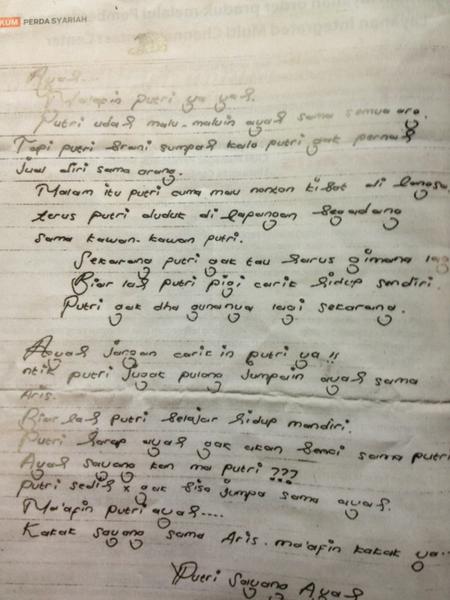 order produk melalui
Integrated Multi
KUM PERDA SYARIAH
Ayah...
Ma'afin putri ya yah.
Putri udah malu-maluin ayah sama semua org.
Tapi putri brani sumpah kalo putri gak pernah
jual diri sama orang.
Malam itu putri cuma mau nonton kibot di langsa,
terus putri duduk di lapangan begadang
sama kawan-kawan putri.
Sekarang putri gak tau harus gimana lag
Biar lah putri pigi carik hidup sendiri.
Putri gak dha gunanya lagi sekarang.
Ayah jangan carik in putri ya !!
ntik putri jugak pulang jumpain ayah sama
Aris.
Biar lah putri belajar hidup mandiri.
Putri harap ayah gak akan benci sama putri
Ayah sayang kan ma putri ???
putri sedih x gak bisa jumpa sama ayah.
Ma'afin putri ayah....
Kakak sayang sama Aris. ma'afin kakak ya..
Putri Sayang Ayah